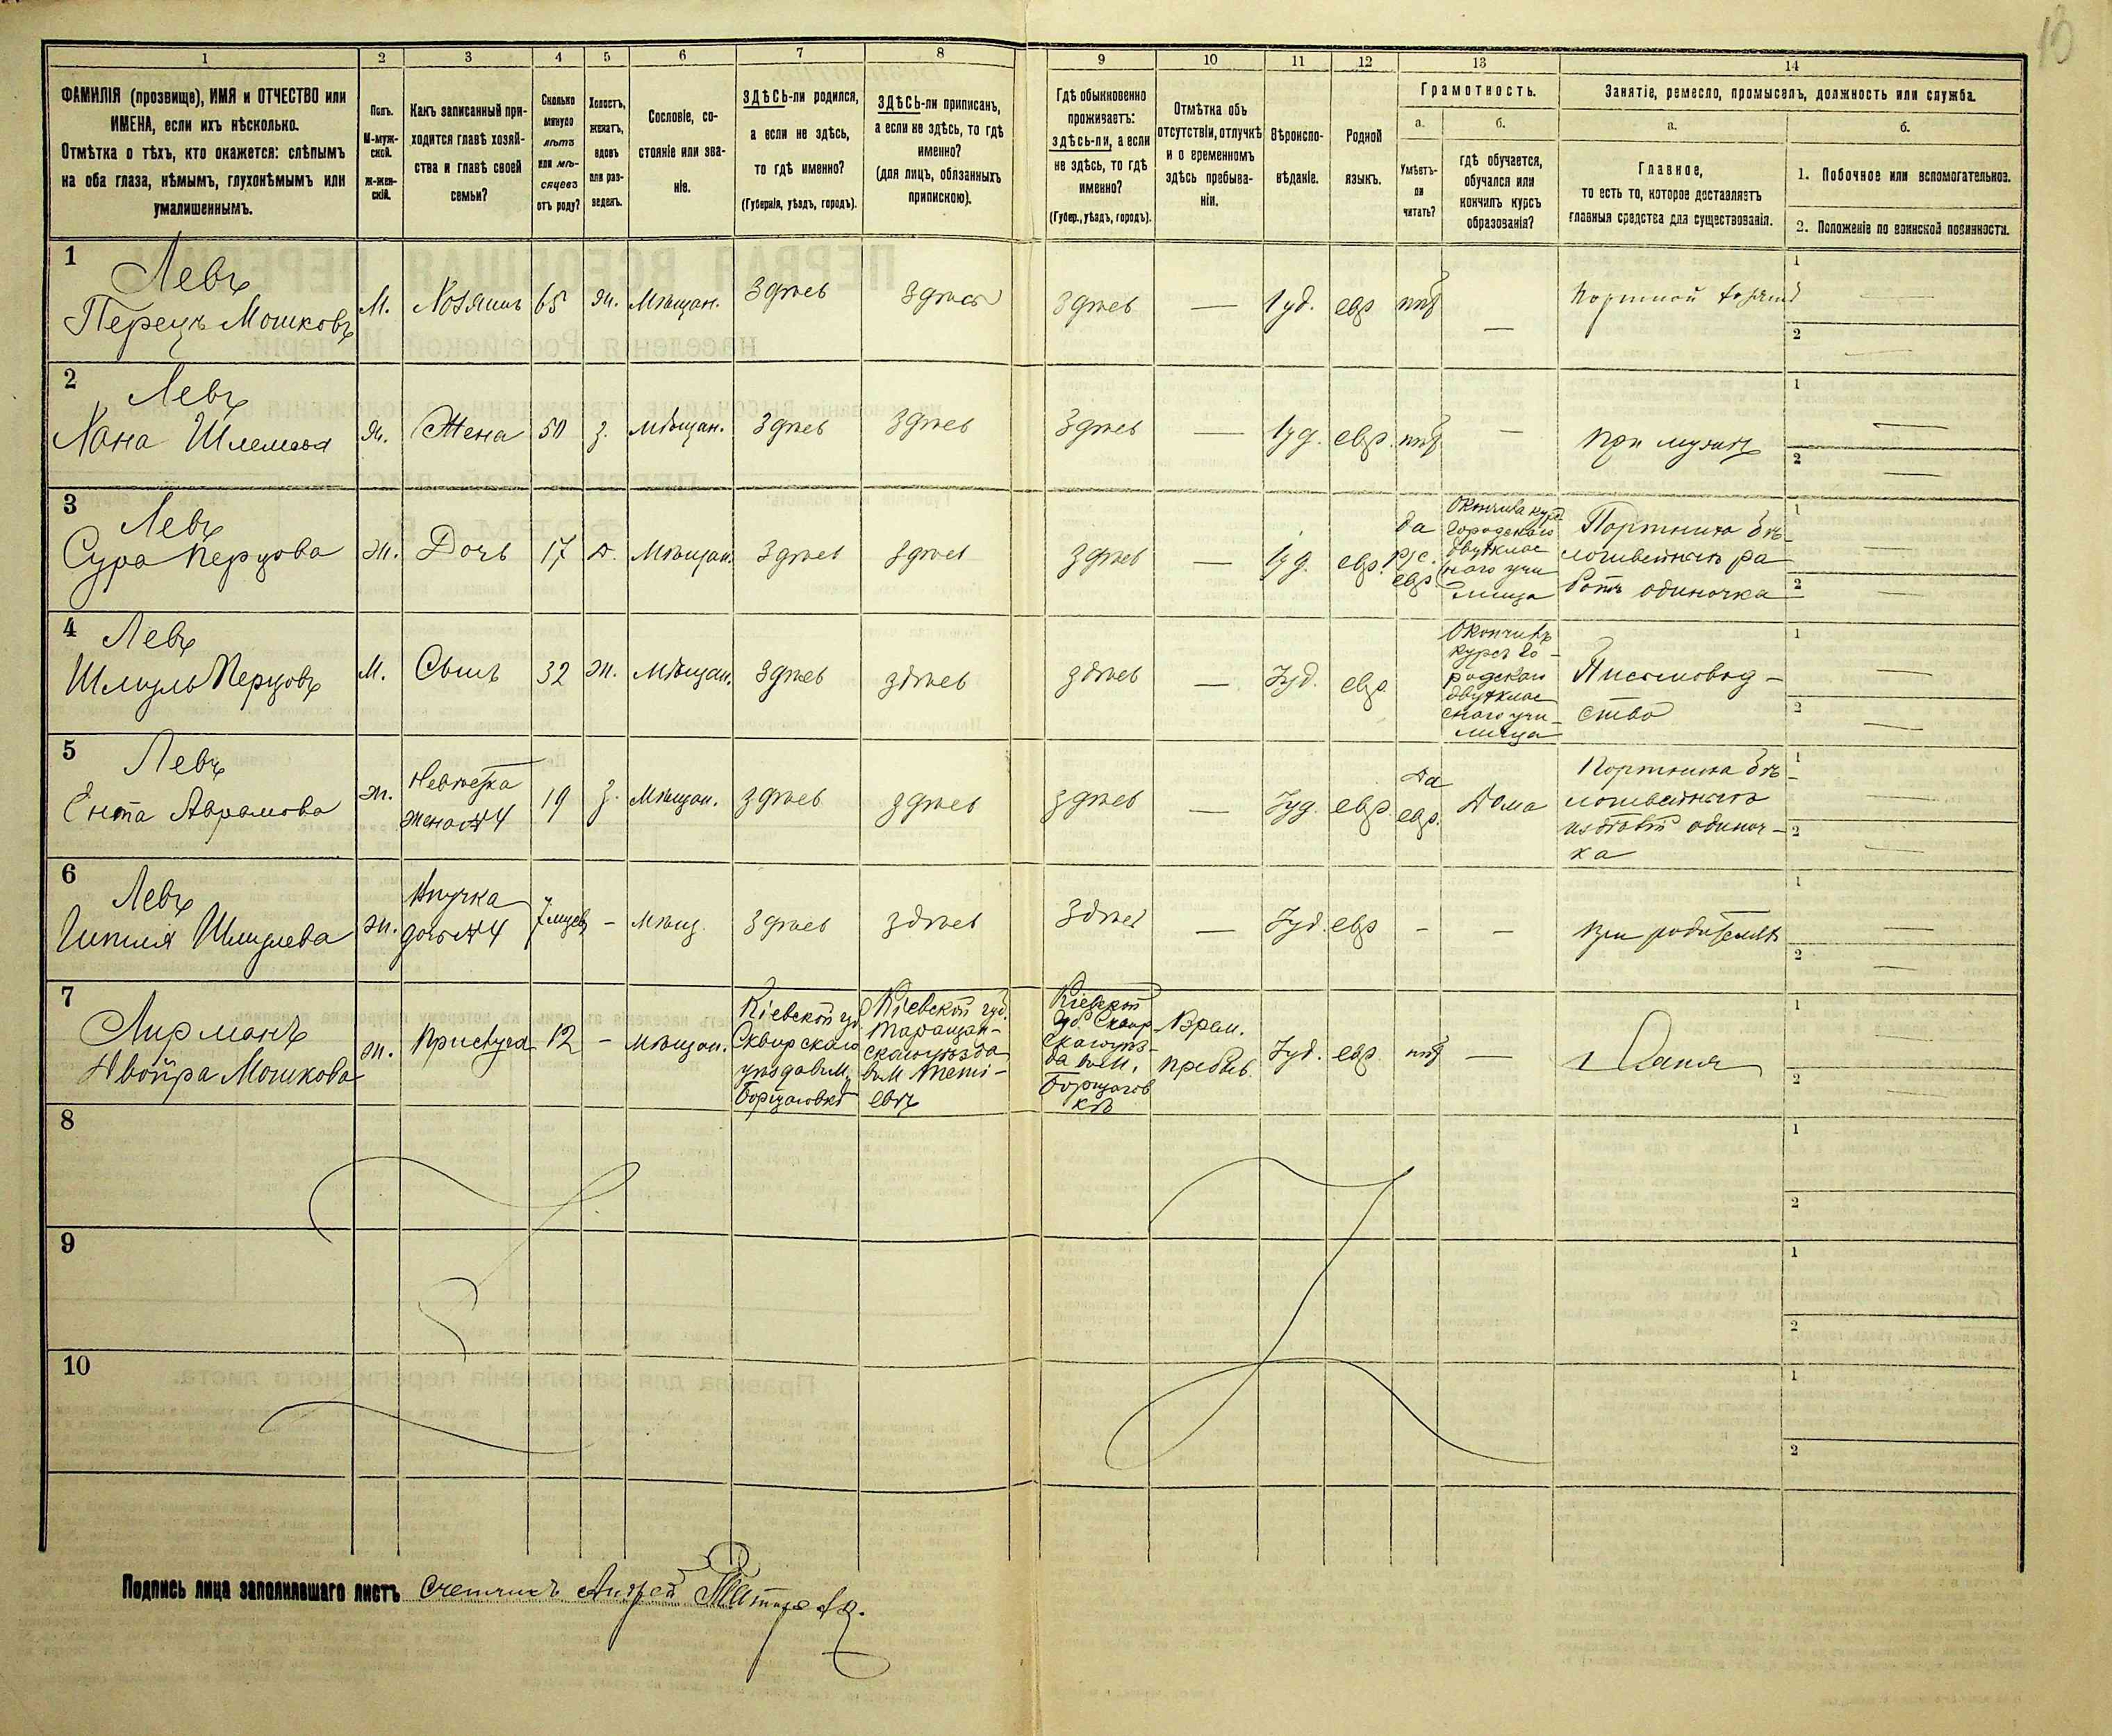 10
1
2
3
4
5
6
7
8
9
10
11
12
13
14
ФАМИЛІЯ (прозвище), ИМЯ и ОТЧЕСТВО или
ИМЕНА, если ихъ нѣсколько.
Отмѣтка о тѣхъ, кто окажется: слѣпымъ
на оба глаза, нѣмымъ, глухонѣмымъ или
умалишеннымъ.
Полъ.
М-муж-
ской.
Ж-жен-
скій.
Какъ записанный при-
ходится главѣ хозяй-
ства и главѣ своей
семьи?
Сколько
минуло
лѣтъ
или мѣ-
сяцевъ
отъ роду?
Холостъ,
женатъ,
вдовъ
или раз-
веденъ.
Сословіе, со-
стояніе или зва-
ніе.
ЗДѢСЬ-ли родился,
а если не здѣсь,
то гдѣ именно?
(Губернія, уѣздъ, городъ).
ЗДѢСЬ-ли приписанъ,
а если не здѣсь, то гдѣ
именно?
(для лицъ, обязанныхъ
припискою).
Гдѣ обыкновенно
проживаетъ:
здѣсь-ли, а если
не здѣсь, то гдѣ
именно?
(Губер., уѣздъ, городъ).
Отмѣтка объ
отсутствіи, отлучкѣ
и о временномъ
здѣсь пребыва-
ніи.
Вѣроиспо-
вѣданіе.
Родной
языкъ.
Грамотность.
а.
Умѣетъ-
ли
читать?
б.
гдѣ обучается,
обучался или
кончилъ курсъ
образованія?
Занятіе, ремесло, промыселъ, должность или служба.
а.
Главное,
то есть то, которое доставляетъ
главныя средства для существованія.
б.
1. Побочное или вспомогательное.
2. Положеніе по воинской повинности.
1
Левъ
Перецъ Мошковъ
М.
Хозяинъ
65
ж.
Мѣщан.
Здѣсь
Здѣсь
Здѣсь
—
Іуд.
евр
нѣт
—
Портной
1
—
2
—
2
Левъ
Хана Шлемова
Ж.
Жена
50
з.
Мѣщан.
Здѣсь
Здѣсь
Здѣсь
—
Іуд.
евр.
нѣт
—
При мужѣ
1
—
2
—
3
Левъ
Сура Перцова
Ж.
Дочь
17
д.
Мѣщан.
Здѣсь
Здѣсь
Здѣсь
—
Іуд.
евр.
да
рус.
евр.
Окончила курс
городского
двухклас
снаго учи
лища
Портниха бѣ-
лошвейныхъ ра
ботъ одиночка
1
—
2
—
4
Левъ
Шмуль Перцовъ
М.
Сынъ
32
ж.
Мѣщан.
Здѣсь
здѣсь
здѣсь
—
Іуд.
евр.
Окончилъ
курсъ го-
родского
двухклас
снаго учи-
лища
Писмовод-
ство
1
—
2
—
5
Левъ
Ента Аврамова
Ж.
Невѣстка
жена №4
19
з.
Мѣщан.
здѣсь
здѣсь
здѣсь
—
Іуд.
евр.
Да
евр.
Дома
Портниха бѣ-
лошвейныхъ
одиноч-
ка
1
—
2
—
6
Левъ
Шмулева
Ж.
Внучка
дочь №4
7 мцев
—
Мѣщ.
Здѣсь
здѣсь
Здѣсь
—
Іуд.
евр
-
-
При родителях
1
—
2
—
7
Лирманъ
Двойра Мошкова
Ж.
Прислуга
12
—
Мѣщан.
Кіевской гу
Сквирскаго
уѣзда в м.
Борщаговкѣ
Кіевской губ.
Таращан-
скаго уѣзда
в м. Тети-
евѣ
Кіевской
губ. Сквир
скаго уѣз-
да в м.
Борщагов
кѣ
Врем.
пребыв.
Іуд.
евр.
нѣт
—
Няня
1
—
2
—
8
1
2
9
1
2
10
1
2
Подпись лица заполнявшаго листъ Счетчикъ Андрей